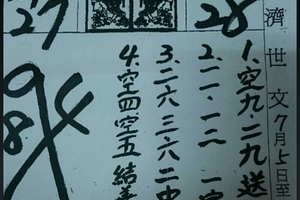 濟世文7月5日至
1.空九.二九送
2.二一.一二一
3.二六三六二中
4.空四空五結善
27
28
984